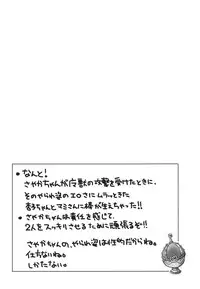 • なんと!
さやかちゃんが魔獣の攻撃を受けたときに、
そのやられ姿のエロさにムラッときた
杏子ちゃんとマミさんに棒が生えちゃった!!
• さやかちゃんは責任を感じて、
2人をスッキリさせるために頑張るぞ!!
さやかちゃんの、やられ姿は性的だからね。
仕方ないね。
しかたない。